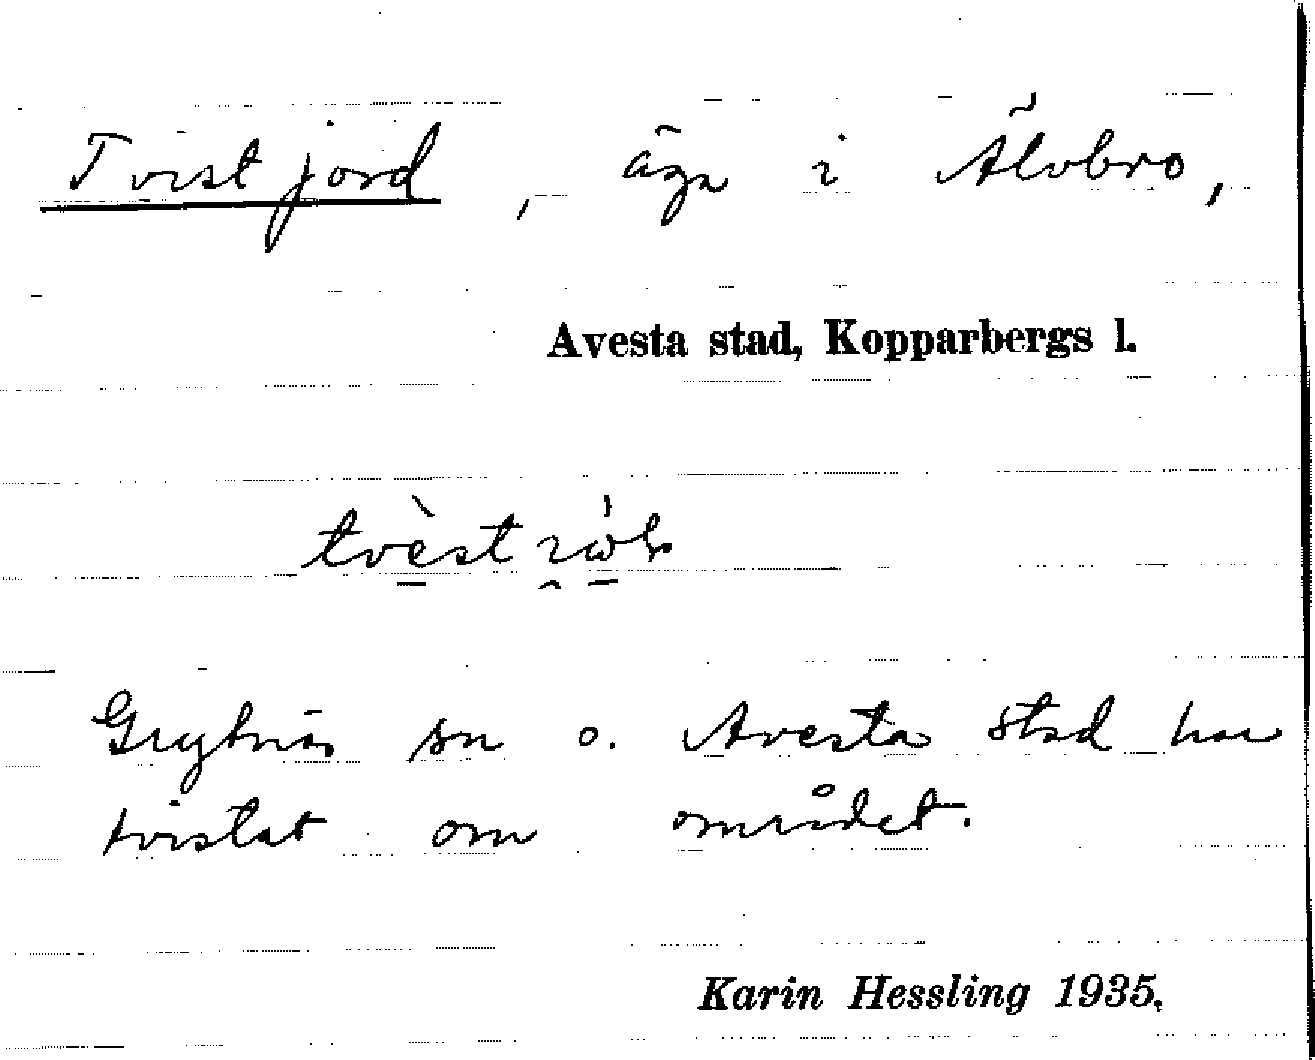 Tvistjord, äga i Älvbro,
Avesta stad, Kopparbergs l.
Grytnäs sn o. Avesta stad har
tvistat om området.
Karin Hessling 1935.